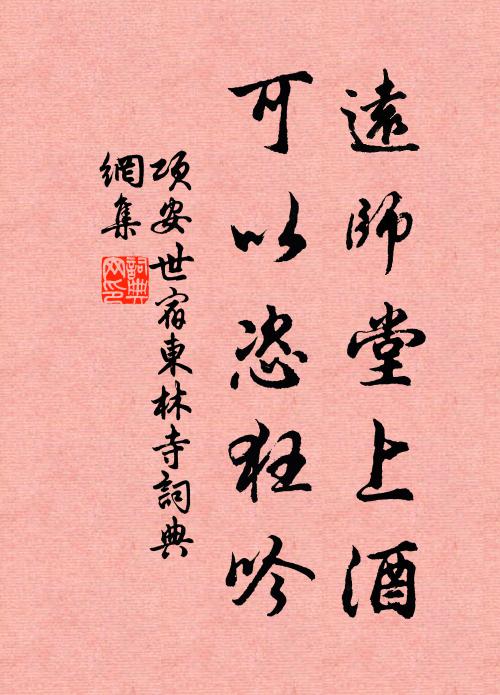 遠師堂上酒
可以恣狂吟
項安世宿東林寺詞典
網集
詞典
网印